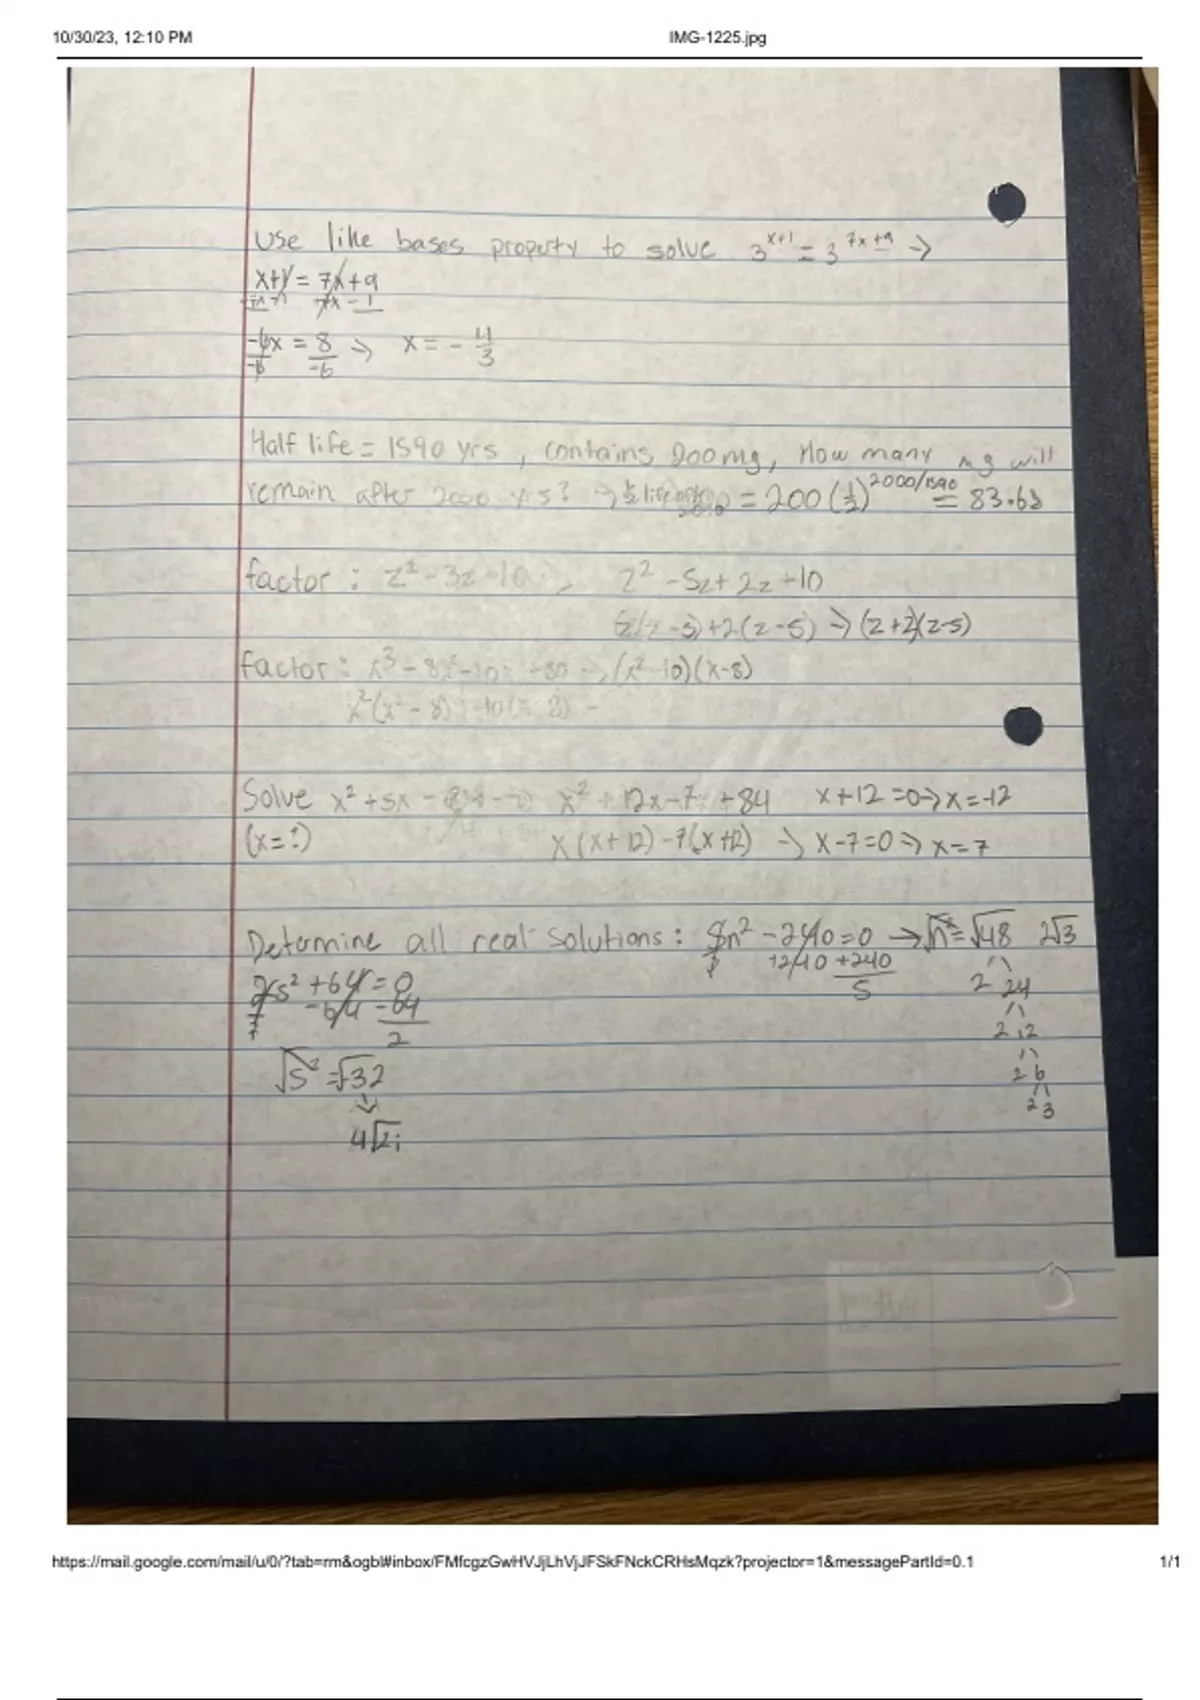 10/30/23, 12:10 PM IMG-1225.jpg
Use like bases property to solve 3^x+1 = 3^7x+9 →
x+1 = 7x+9
-7x -1 -7x - 1
-6x = 8 → x = - 4/3
-6 -6
Half life = 1590 yrs , contains 200mg, How many mg will
remain after 2000 yrs? → = 200 (1/2)^2000/1590 = 83.63
factor : z² - 3z - 10 z² - 5z + 2z - 10
z(z - 5) + 2(z - 5) → (z+2)(z-5)
factor : x³ - 8x² - 10x + 80 → (x² - 10)(x-8)
x²(x - 8)
Solve x² + 5x - x² + 12x - 7x + 84 x+12 =0→ x = -12
(x=?) x(x+12) - 7(x+12) → x-7=0 → x=7
Determine all real solutions : 5n² - 240=0 → √n² = √48 2√3
+240 +240
5
2s² + 64 = 0 2 24
-64 -64
2 2 12
√s² = √-32 2 6
2 3
4√2i
https://mail.google.com/mail/u/0/?tab=rm&ogbl#inbox/FMfcgzGwHVJjLhVjJFSkFNckCRHsMqzk?projector=1&messagePartId=0.1 1/1